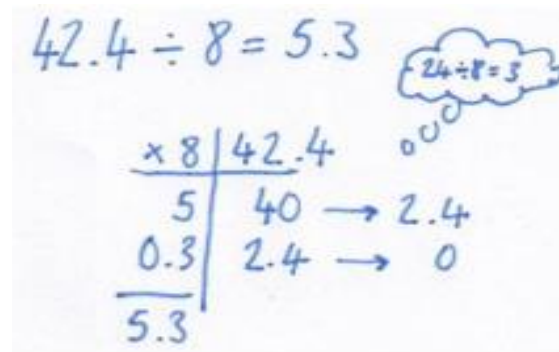 42.4 ÷ 8 = 5.3
24÷8=3
× 8 | 42.4
5 | 40 → 2.4
0.3 | 2.4 → 0
5.3